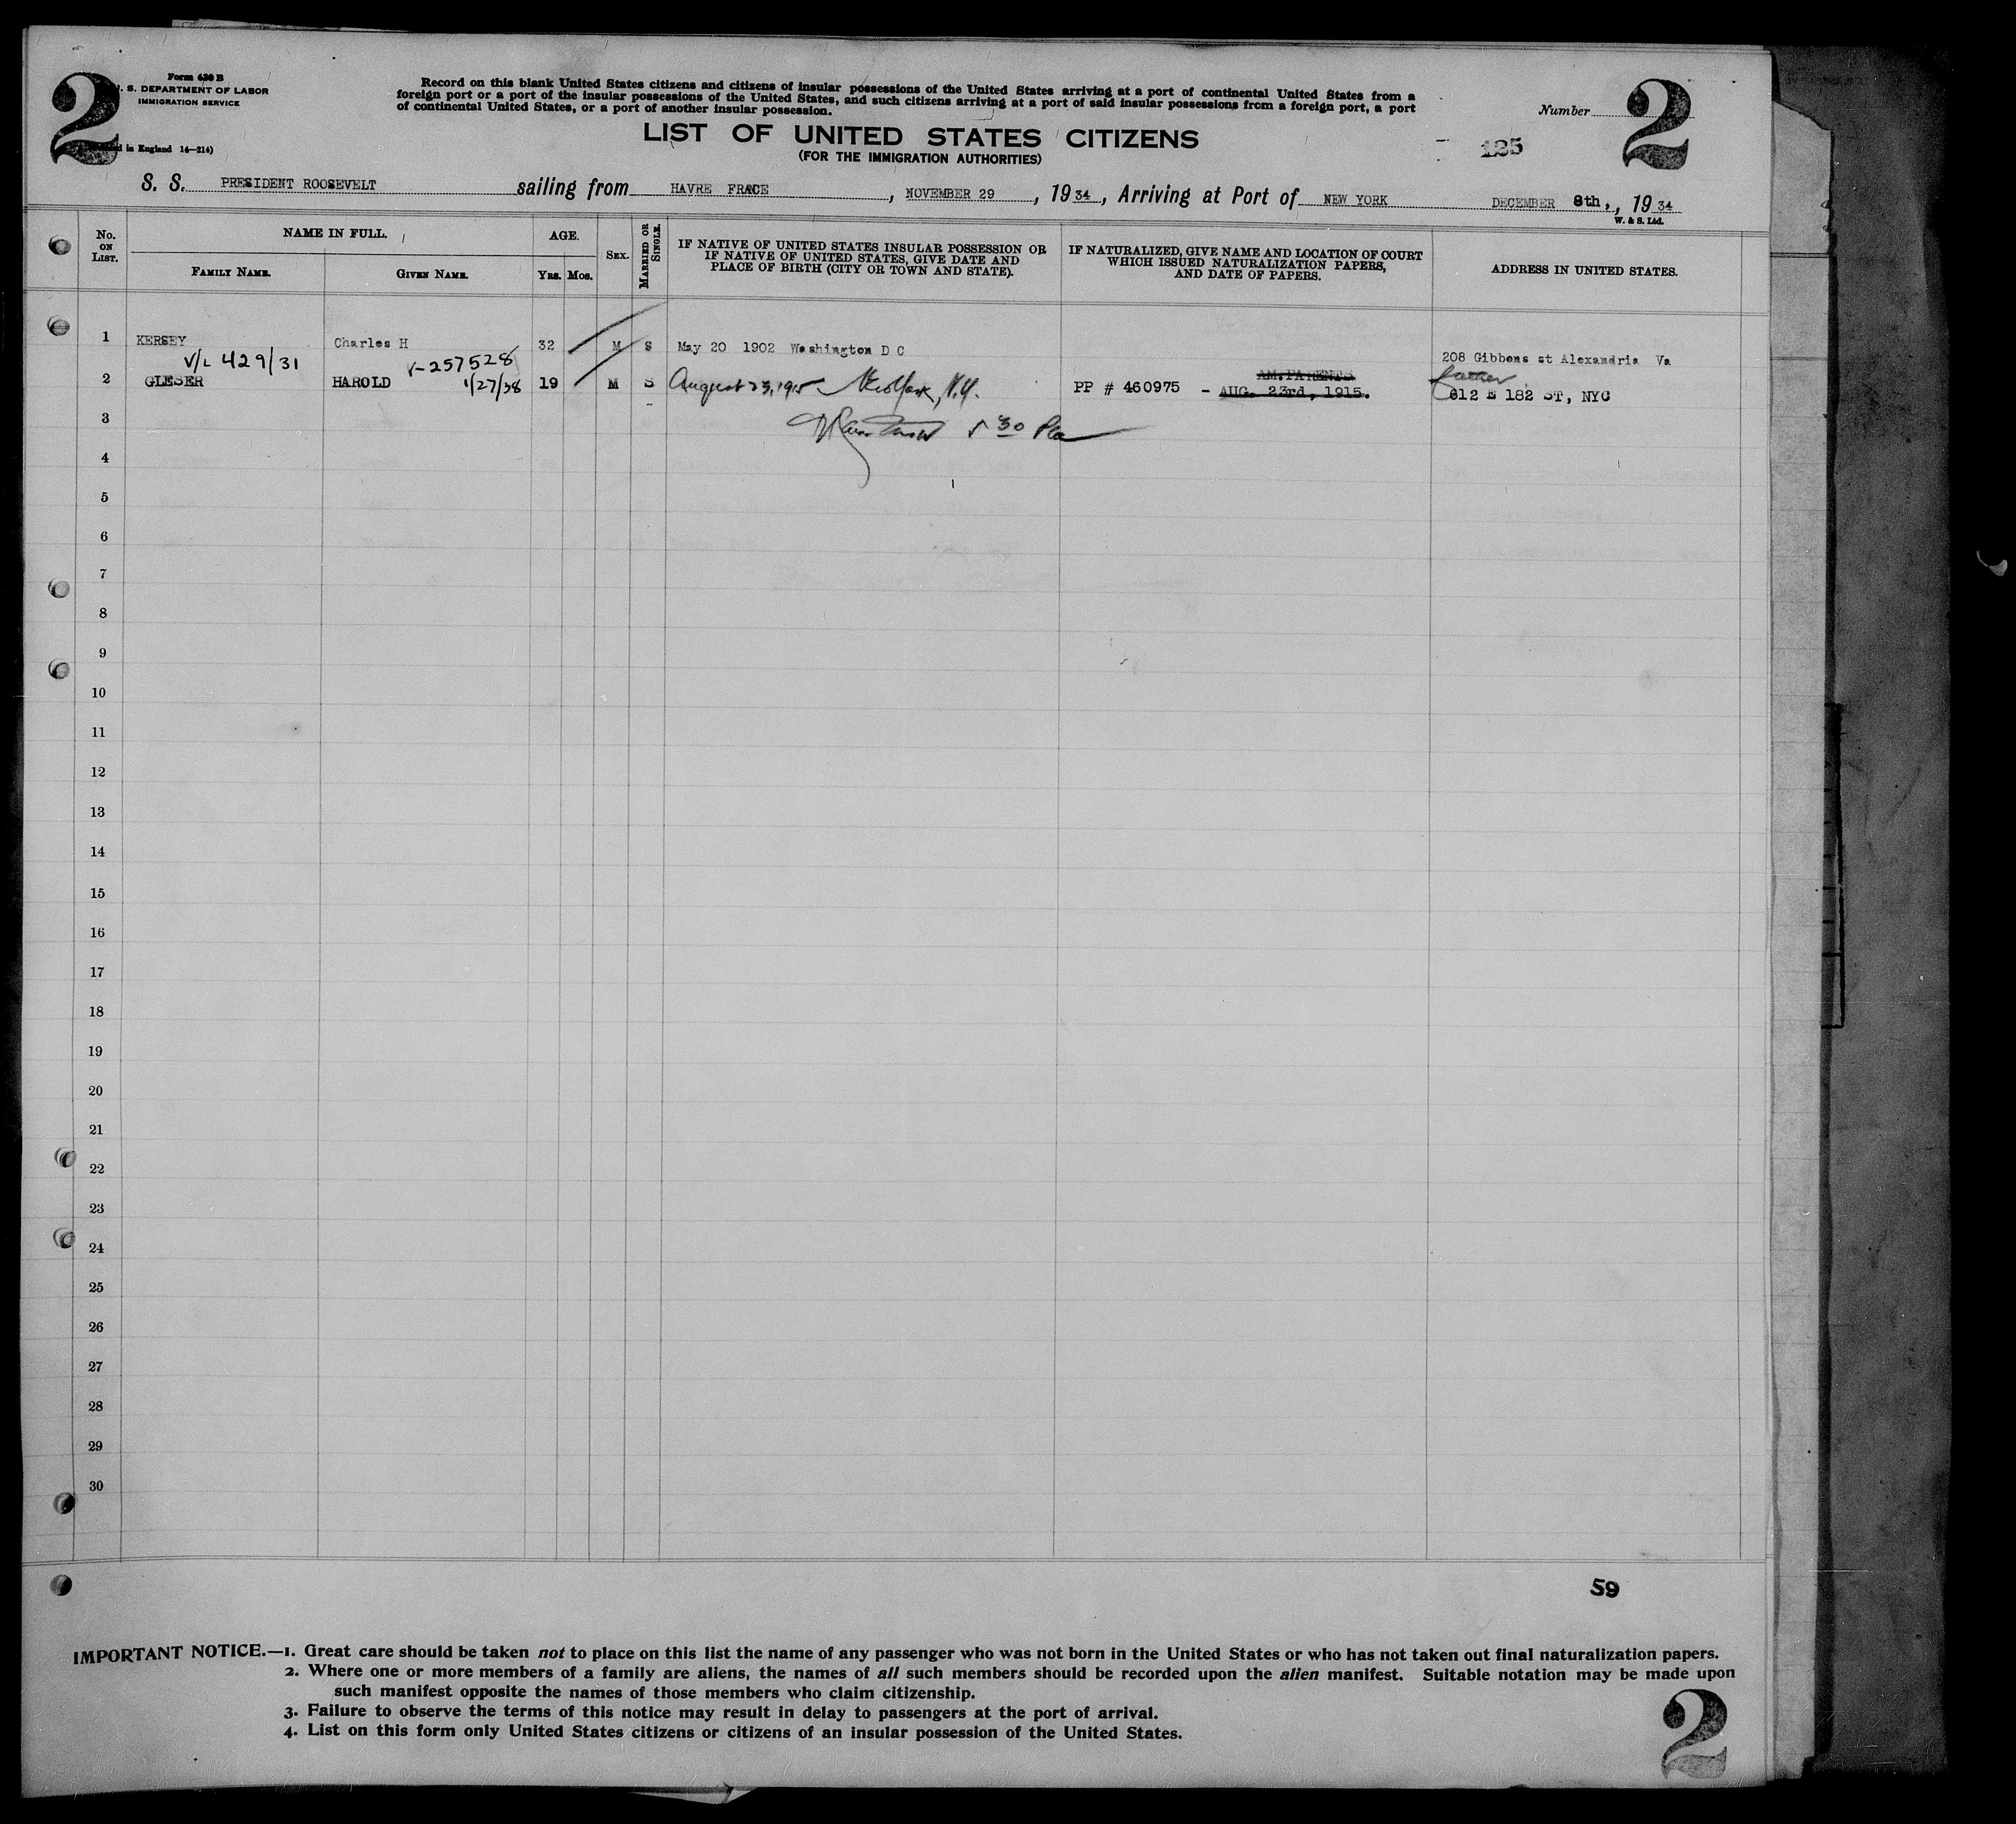 2
Form 630 B
U. S. DEPARTMENT OF LABOR
IMMIGRATION SERVICE
in England 14—214)
Record on this blank United States citizens and citizens of insular possessions of the United States arriving at a port of continental United States from a
foreign port or a port of the insular possessions of the United States, and such citizens arriving at a port of said insular possessions from a foreign port, a port
of continental United States, or a port of another insular possession.
Number
2
LIST OF UNITED STATES CITIZENS
(FOR THE IMMIGRATION AUTHORITIES)
125
S. S. PRESIDENT ROOSEVELT sailing from HAVRE FRACE, NOVEMBER 29, 1934, Arriving at Port of NEW YORK DECEMBER 8th,, 1934
W. & S. Ltd.
No. ON LIST. NAME IN FULL. AGE. SEX. MARRIED OR SINGLE. IF NATIVE OF UNITED STATES INSULAR POSSESSION OR IF NATIVE OF UNITED STATES, GIVE DATE AND PLACE OF BIRTH (CITY OR TOWN AND STATE). IF NATURALIZED, GIVE NAME AND LOCATION OF COURT WHICH ISSUED NATURALIZATION PAPERS, AND DATE OF PAPERS. ADDRESS IN UNITED STATES.
FAMILY NAME. GIVEN NAME. YRS. MOS.
1 KERSEY Charles H 32 M S May 20 1902 Washington D C 208 Gibbons st Alexandria Va
V/L 429/31 V-257528 AM.PARENTS father
2 GLESER HAROLD 1/27/38 19 M S August 23, 1915 New York, N.Y. PP # 460975 - AUG. 23rd, 1915. 612 E 182 ST, NYC
3
4
5
6
7
8
9
10
11
12
13
14
15
16
17
18
19
20
21
22
23
24
25
26
27
28
29
30
59
IMPORTANT NOTICE.—1. Great care should be taken not to place on this list the name of any passenger who was not born in the United States or who has not taken out final naturalization papers.
2. Where one or more members of a family are aliens, the names of all such members should be recorded upon the alien manifest. Suitable notation may be made upon
such manifest opposite the names of those members who claim citizenship.
3. Failure to observe the terms of this notice may result in delay to passengers at the port of arrival.
4. List on this form only United States citizens or citizens of an insular possession of the United States.
2